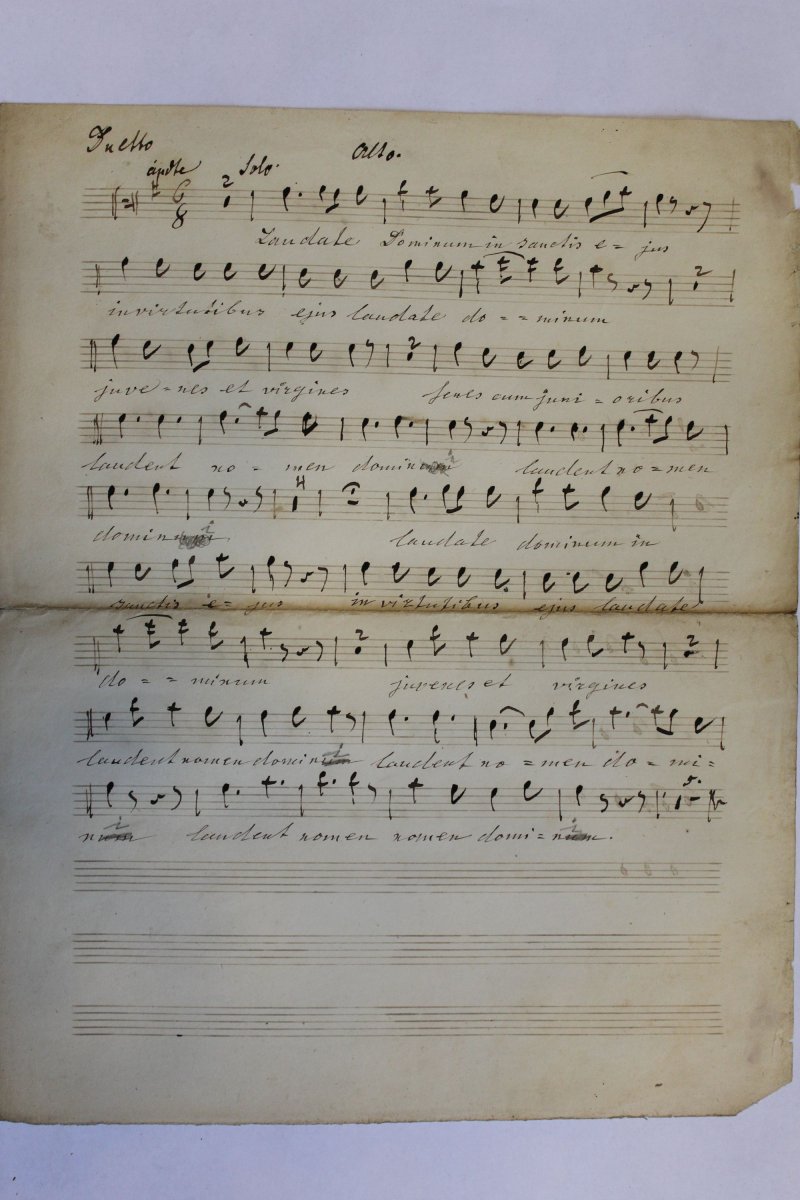 Duetto
Alto.
andte Solo.
6
8
2
Laudate Dominum in sanctis e = jus
2
in virtutibus ejus laudate do = = minum
2
juve = nes et virgines senes cum juni = oribus
laudent no = men domini laudent no = men
4
domini laudate dominum in
sanctis e = jus in virtutibus ejus laudate
2 2
do = = minum juvenes et virgines
laudent nomen domini laudent no = men do = mi =
5.
ni laudent nomen nomen domi = ni.